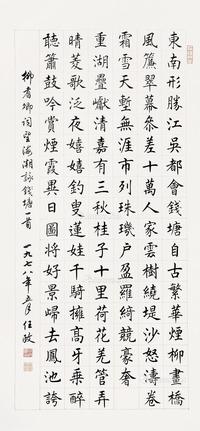 東南形勝江吳都會錢塘自古繁華煙柳畫橋
風簾翠幕參差十萬人家雲樹繞堤沙怒濤卷
霜雪天塹無涯市列珠璣戶盈羅綺競豪奢
重湖疊巘清嘉有三秋桂子十里荷花羌管弄
晴菱歌泛夜嬉嬉釣叟蓮娃千騎擁高牙乘醉
聽簫鼓吟賞煙霞異日圖將好景歸去鳳池誇
柳耆卿詞望海潮詠錢塘一首 一九七八年五月 任政